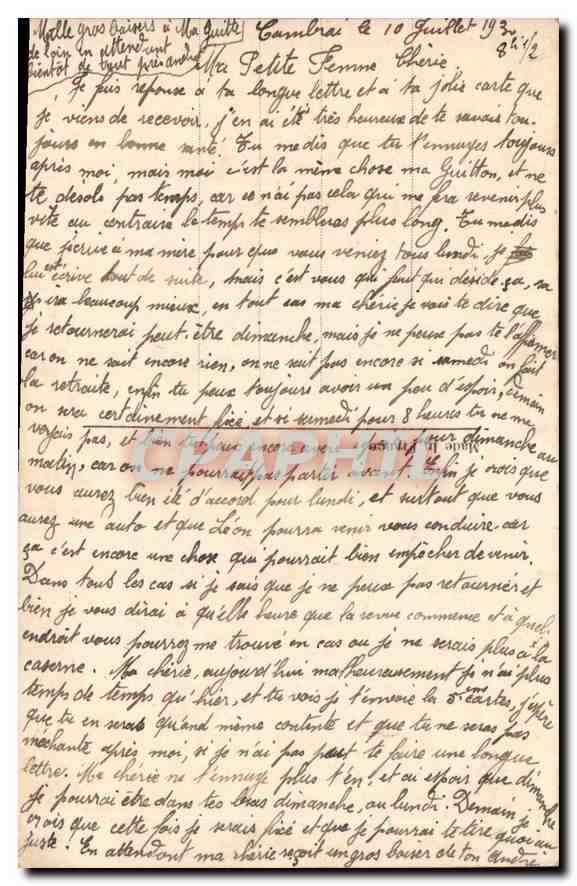 Mille gros baisers à Ma Guitte
de loin en attendant
bientôt de tout près andré
Cambrai le 10 Juillet 193
8h 1/2
Ma Petite Femme Chérie
Je fais réponse à ta longue lettre et à ta jolie carte que
je viens de recevoir, j'en ai été très heureuse de te savoir tou-
jours en bonne santé. Tu me dis que tu t'ennuyes toujours
après moi, mais moi c'est la même chose ma Guitton, et ne
te désole pas temps, car ce n'ai pas cela qui me fera revenir plus
vite au contraire le temps te sembleras plus long. Tu me dis
que j'écrive à ma mère pour que vous veniez tous lundi je
lui écrive tout de suite, mais c'est vous qui faut qui décide ça, sa
ira beaucoup mieux, en tout cas ma chérie je vais te dire que
je retournerai peut-être dimanche, mais je ne peux pas te l'affirmer
car on ne sait encore rien, on ne sait pas encore si samedi on fait
la retraite, enfin tu peux toujours avoir un peu d'espoir, demain
on sera certainement fixé, et si samedi pour 8 heures tu ne me
voyais pas, et bien tu peux encore avoir espoir pour dimanche au
matin, car on ne pourrait pas partir avant. Enfin je crois que
vous aurez bien été d'accord pour lundi, et surtout que vous
aurez une auto et que Léon pourra venir vous conduire car
ça c'est encore une chose qui pourrait bien empêcher de venir.
Dans tout les cas si je sais que je ne peux pas retourner et
bien je vous dirai à qu'elle heure que la revue commence et à quel
endroit vous pourrez me trouvé en cas ou je ne serais plus à la
caserne. Ma chérie, aujourd'hui malheureusement je n'ai plus
temps de temps qu'hier, et tu vois je t'envoie la 5ème cartes, j'espère
que tu en seras quand même contente et que tu ne seras pas
méchante après moi, si je n'ai pas peut te faire une longue
lettre. Ma chérie ne t'ennuye plus t'en, et ai espoir que dimanche
je pourrai être dans tes bras dimanche, ou lundi. Demain, je
crois que cette fois je serais fixé et que je pourrai te dire quoi au
juste. En attendant ma chérie reçoit un gros baiser de ton André
Made in France
CPAPHIL